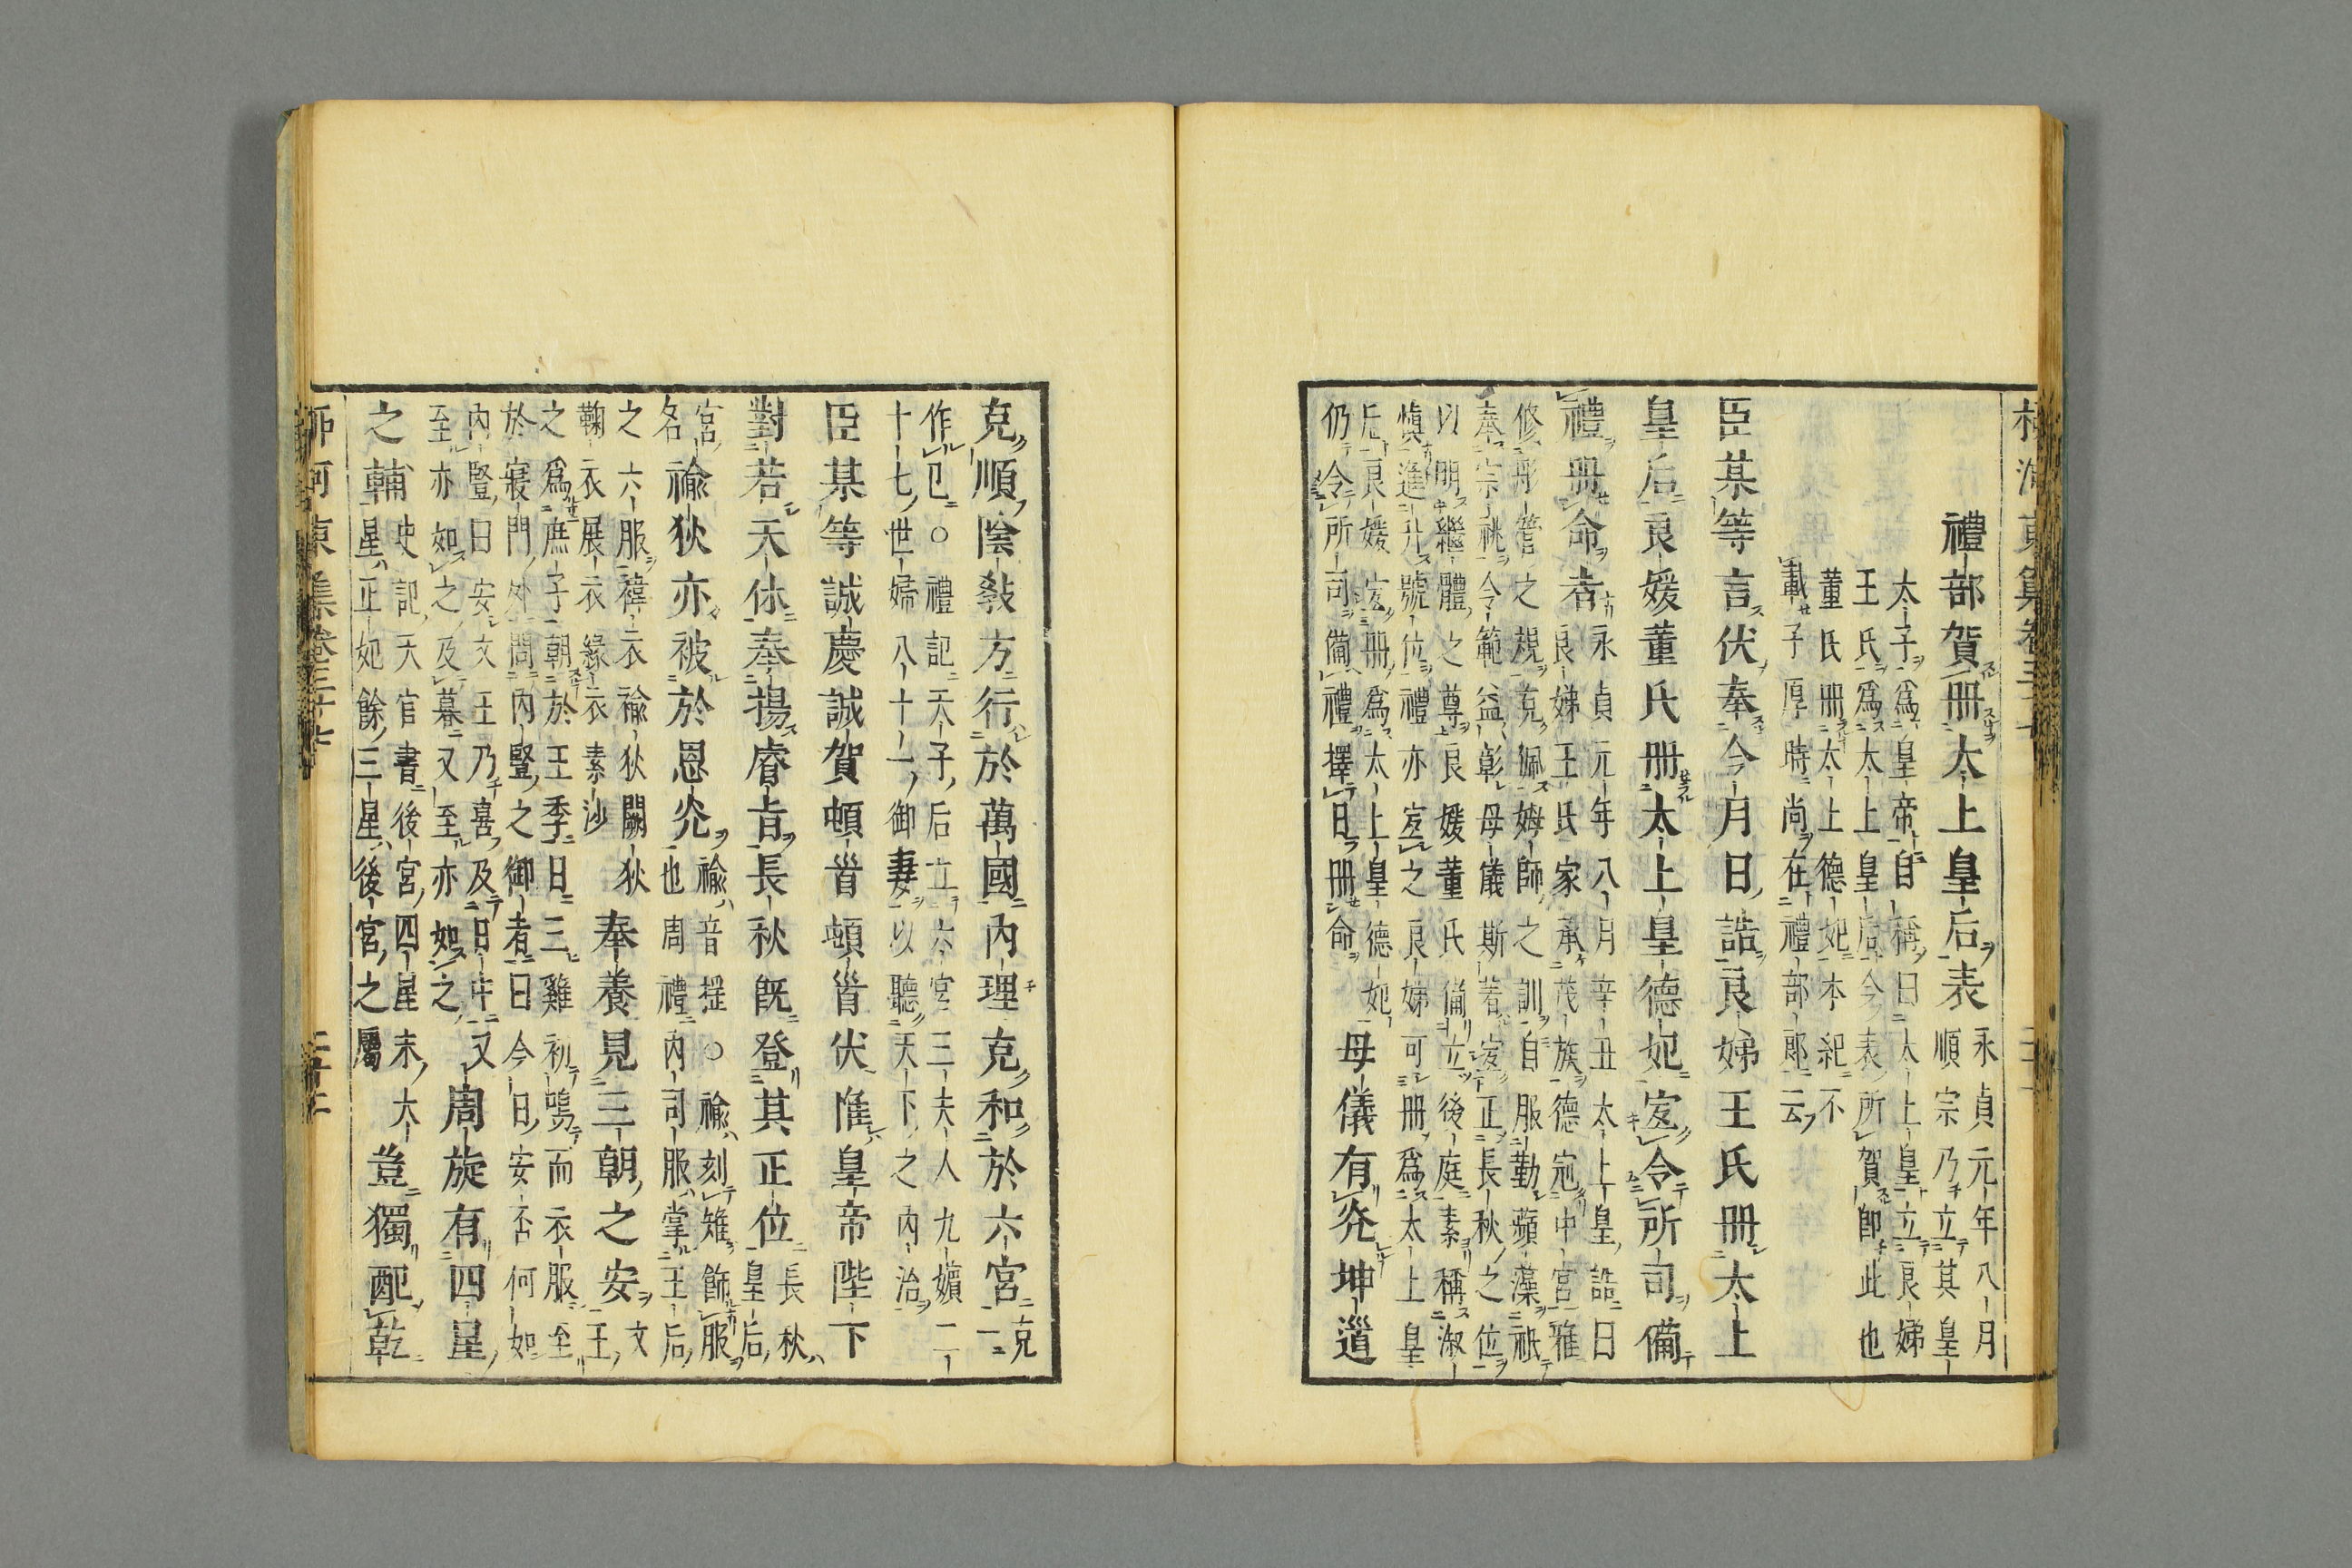 禮部賀冊太上皇后表
永貞元年八月
順宗乃立其皇
太子爲皇帝自稱曰太上皇立良娣
王氏爲太上皇后今表所賀卽此也
董氏冊太上德妃本紀不
載子厚時尚在禮部郎云
臣某等言伏奉今月日誥良娣王氏冊太上
皇后良媛董氏冊太上皇德妃宜令所司備
禮冊命者
永貞元年八月辛丑太上皇誥曰
良娣王氏家承茂族德冠中宮雅
修彤管之規克佩姆師之訓自服勤蘋藻祇
奉宗祧令範益彰母儀斯著宜正長秋之位
以明繼體之尊良媛董氏備立後庭素稱淑
愼進升號位禮亦宜之良娣可冊爲太上皇
后良媛宜冊爲太上皇德妃
仍令所司備禮擇日冊命
母儀有光坤道
克順陰敎方行於萬國內理克和於六宮
克
一
作已○禮記天子后立六宮三夫人九嬪二
十七世婦八十一御妻以聽天下之內治
臣某等誠慶誠賀頓首頓首伏惟皇帝陛下
對若天休奉揚睿旨長秋旣登其正位
長秋
皇后
宮
名
褕狄亦被於恩光
褕音搖○褕刻雉飾服
也周禮內司服掌王后
之六服褘衣褕狄闕狄
鞠衣展衣緣衣素沙
奉養見三朝之安
文
王
之爲庶子朝於王季日三雞初鳴而衣服至
於寢門外問內豎之御者曰今日安否何如
內豎曰安文王乃喜及日中又
至亦如之及暮又至亦如之
周旋有四星
之輔
史記天官書後宮四星末大
星正妃餘三星後宮之屬
豈獨配乾
柳河東集卷三十七